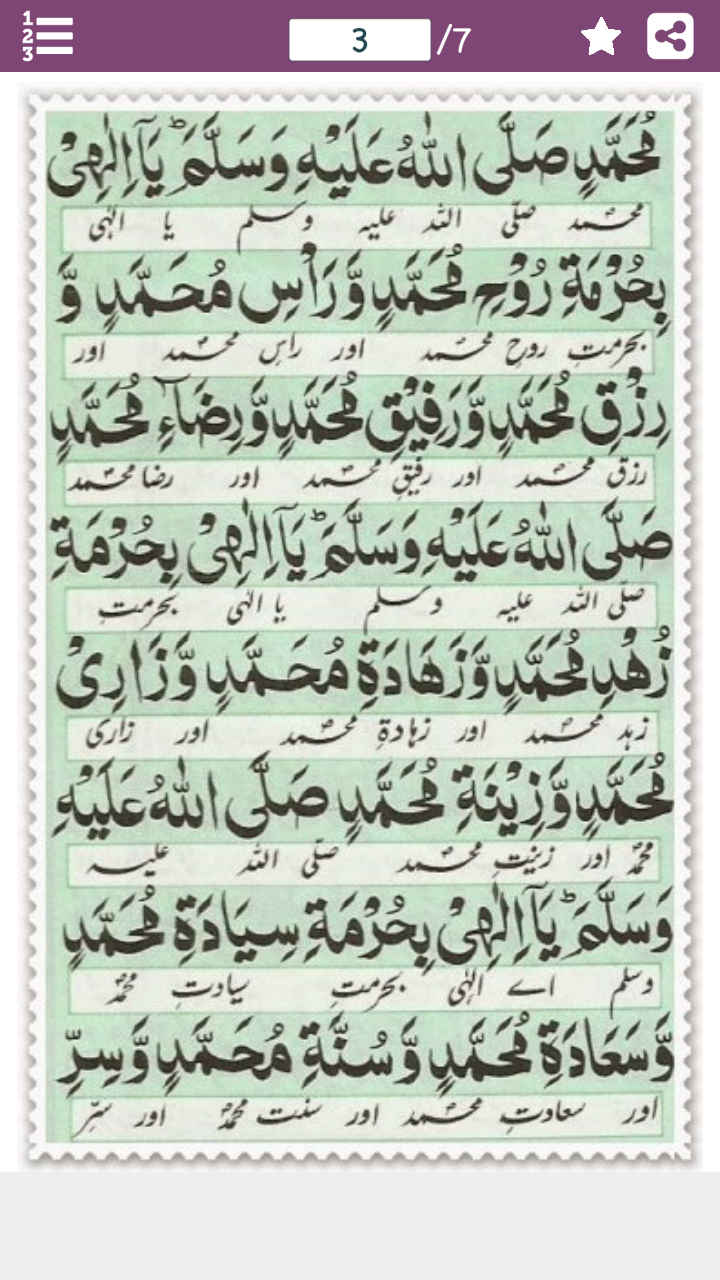 3 /7
مُحَمَّدٍ صَلَّى اللهُ عَلَيْهِ وَسَلَّمَ ؕ يَآ اِلٰهِىْ
محمد صلّی اللہ علیہ وسلم یا الٰہی
بِحُرْمَةِ رُوْحِ مُحَمَّدٍ وَّرَاْسِ مُحَمَّدٍ وَّ
بحرمتِ روحِ محمد اور راسِ محمد اور
رِزْقِ مُحَمَّدٍ وَّرَفِيْقِ مُحَمَّدٍ وَّرِضَآءِ مُحَمَّدٍ
رزق محمد اور رفیقِ محمد اور رضا محمد
صَلَّى اللهُ عَلَيْهِ وَسَلَّمَ ؕ يَآ اِلٰهِىْ بِحُرْمَةِ
صلّی اللہ علیہ وسلم یا الٰہی بحرمتِ
زُهْدِ مُحَمَّدٍ وَّزَهَادَةِ مُحَمَّدٍ وَّزَارِىْ
زہد محمد اور زہادۃِ محمد اور زاری
مُحَمَّدٍ وَّزِيْنَةِ مُحَمَّدٍ صَلَّى اللهُ عَلَيْهِ
محمدؐ اور زینتِ محمد صلّی اللہ علیہ
وَسَلَّمَ ؕ يَآ اِلٰهِىْ بِحُرْمَةِ سِيَادَةِ مُحَمَّدٍ
وسلم اے الٰہی بحرمتِ سیادتِ محمدؐ
وَّسَعَادَةِ مُحَمَّدٍ وَّسُنَّةِ مُحَمَّدٍ وَّسِرِّ
اور سعادتِ محمد اور سنت محمدؐ اور سّرِ